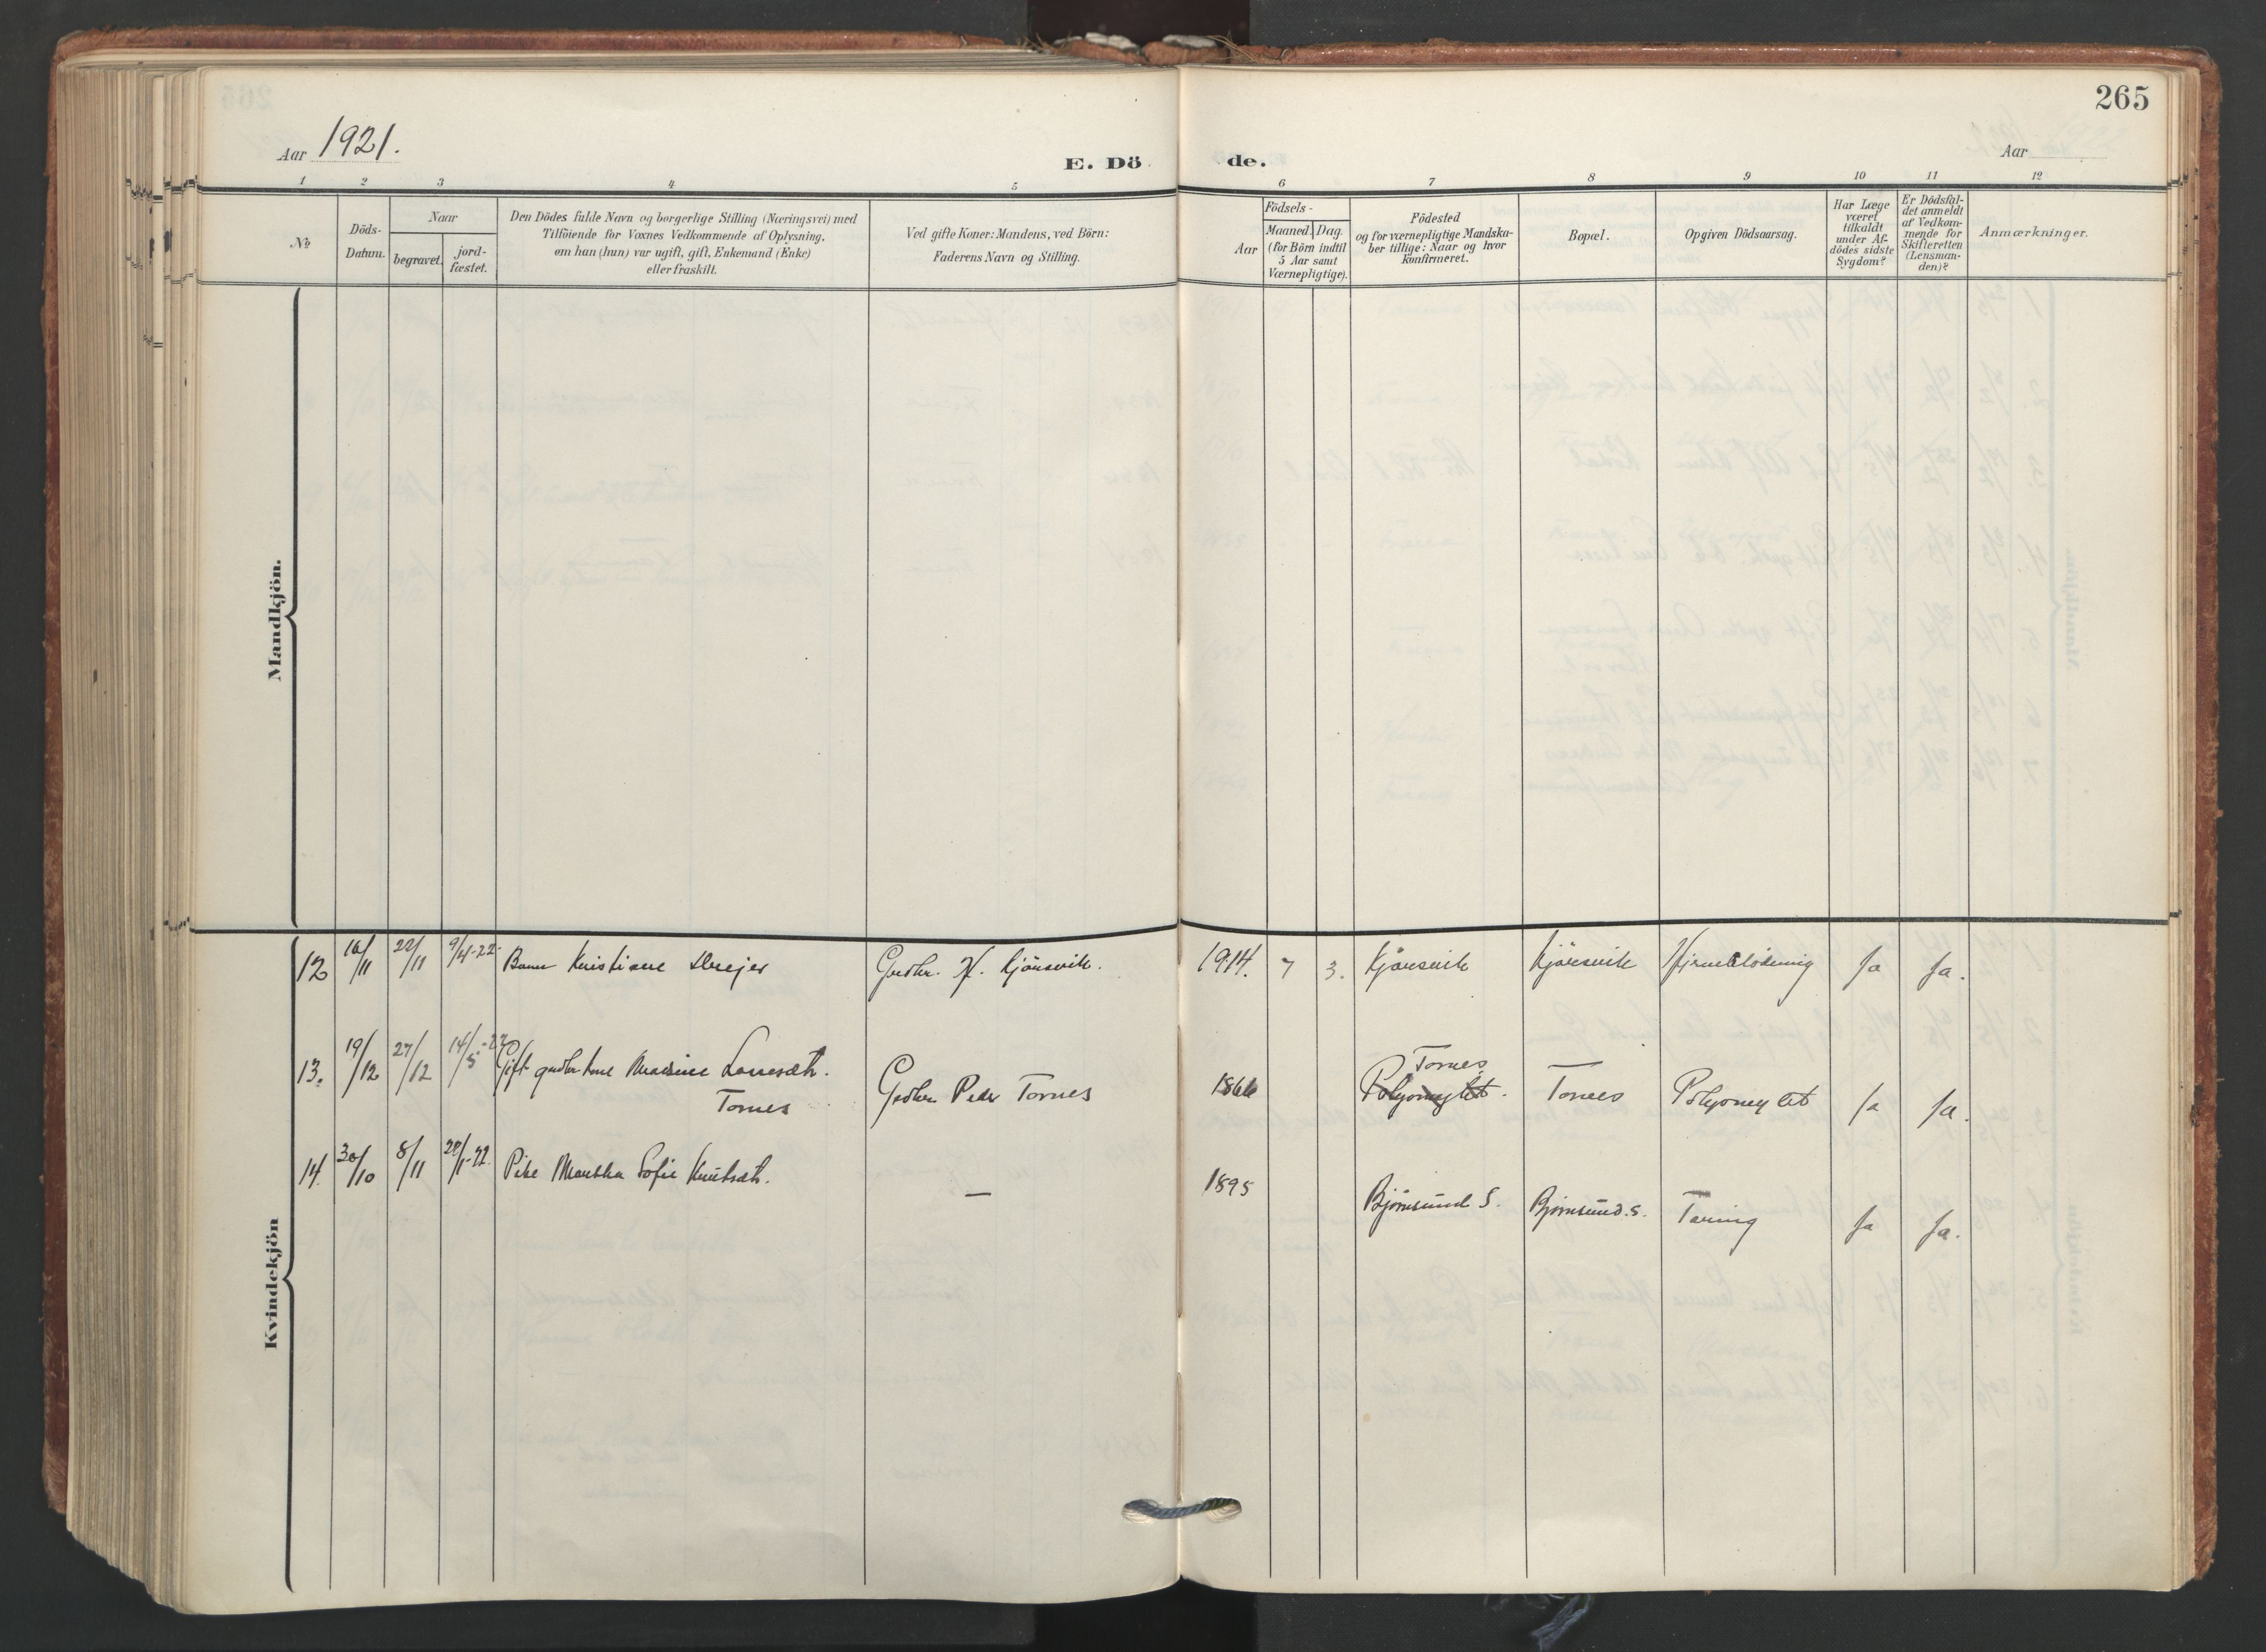 265
Aar 1921.
E. Dö
de.
Aar
1 2 3 4 5 6 7 8 9 10 11 12
№
Döds-
Datum.
Naar
begravet.
jord-
fæstet.
Den Dödes fulde Navn og borgerlige Stilling (Næringsvei) med
Tilföiende for Voxnes Vedkommende af Oplysning,
om han (hun) var ugift, gift, Enkemand (Enke)
eller fraskilt.
Ved gifte Koner: Mandens, ved Börn:
Faderens Navn og Stilling.
Födsels-
Aar
Maaned. Dag.
(for Börn indtil
5 Aar samt
Værnepligtige).
Födested
og for værnepligtige Mandska-
ber tillige: Naar og hvor
Konfirmeret.
Bopæl.
Opgiven Dödsaarsag.
Har Læge
været
tilkaldt
under Af-
dödes sidste
Sygdom?
Er Dödsfal-
det anmeldt
af Vedkom-
mende for
Skifteretten
(Lensman-
den)?
Anmærkninger.
Mandkjön.
Kvindekjön
12 16/11 22/11 9/4-22 Barn Kristiane Gudbr. H. Kjörsvik. 1914. 7 3. Kjörsvik Kjörsvik Ja Ja.
13. 19/12 27/12 14/5-22 Gift gudbr kone Tornes
Tornes Gudbr. Peder Tornes 1866 Polyomylit. Tornes Polyomylit Ja Ja.
14. 30/10 8/11 22/1-22. Pike Martha Sofie Knutsdt. — 1895 Bjørnsund S. Bjørnsund. S. Tæring Ja Ja.